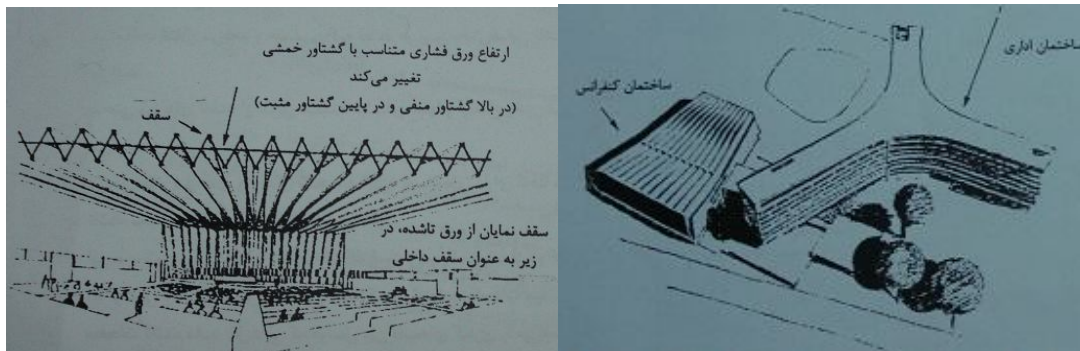 ارتفاع ورق فشاری متناسب با گشتاور خمشی
تغییر می‌کند
(در بالا گشتاور منفی و در پایین گشتاور مثبت)
سقف
سقف نمایان از ورق تاشده، در
زیر به عنوان سقف داخلی
ساختمان اداری
ساختمان کنفرانس